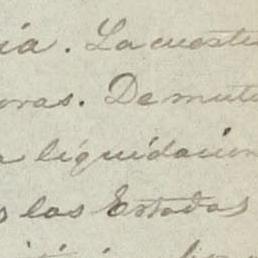 ia. La cuesti
oras. De mutu
a liquidacion
s las Estadas